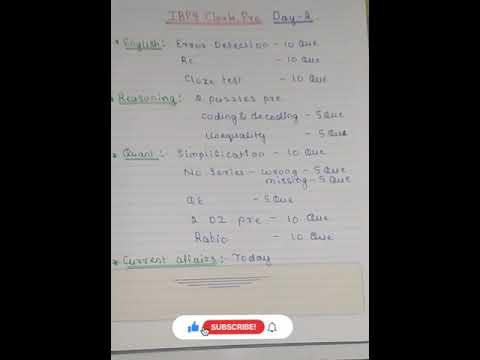 IBPS Clerk Pre Day-2
* English: Error Detection - 10 Que
RC - 10 Que
Cloze test - 10 Que
* Reasoning: 2 puzzles pre
coding & decoding - 5 Que
Inequality - 5 Que
* Quant: Simplification - 10 Que
No Series - wrong - 5 Que
missing - 5 Que
QE - 5 Que
2 DI pre - 10 Que
Ratio - 10 Que
* Current affairs:- Today
SUBSCRIBE!